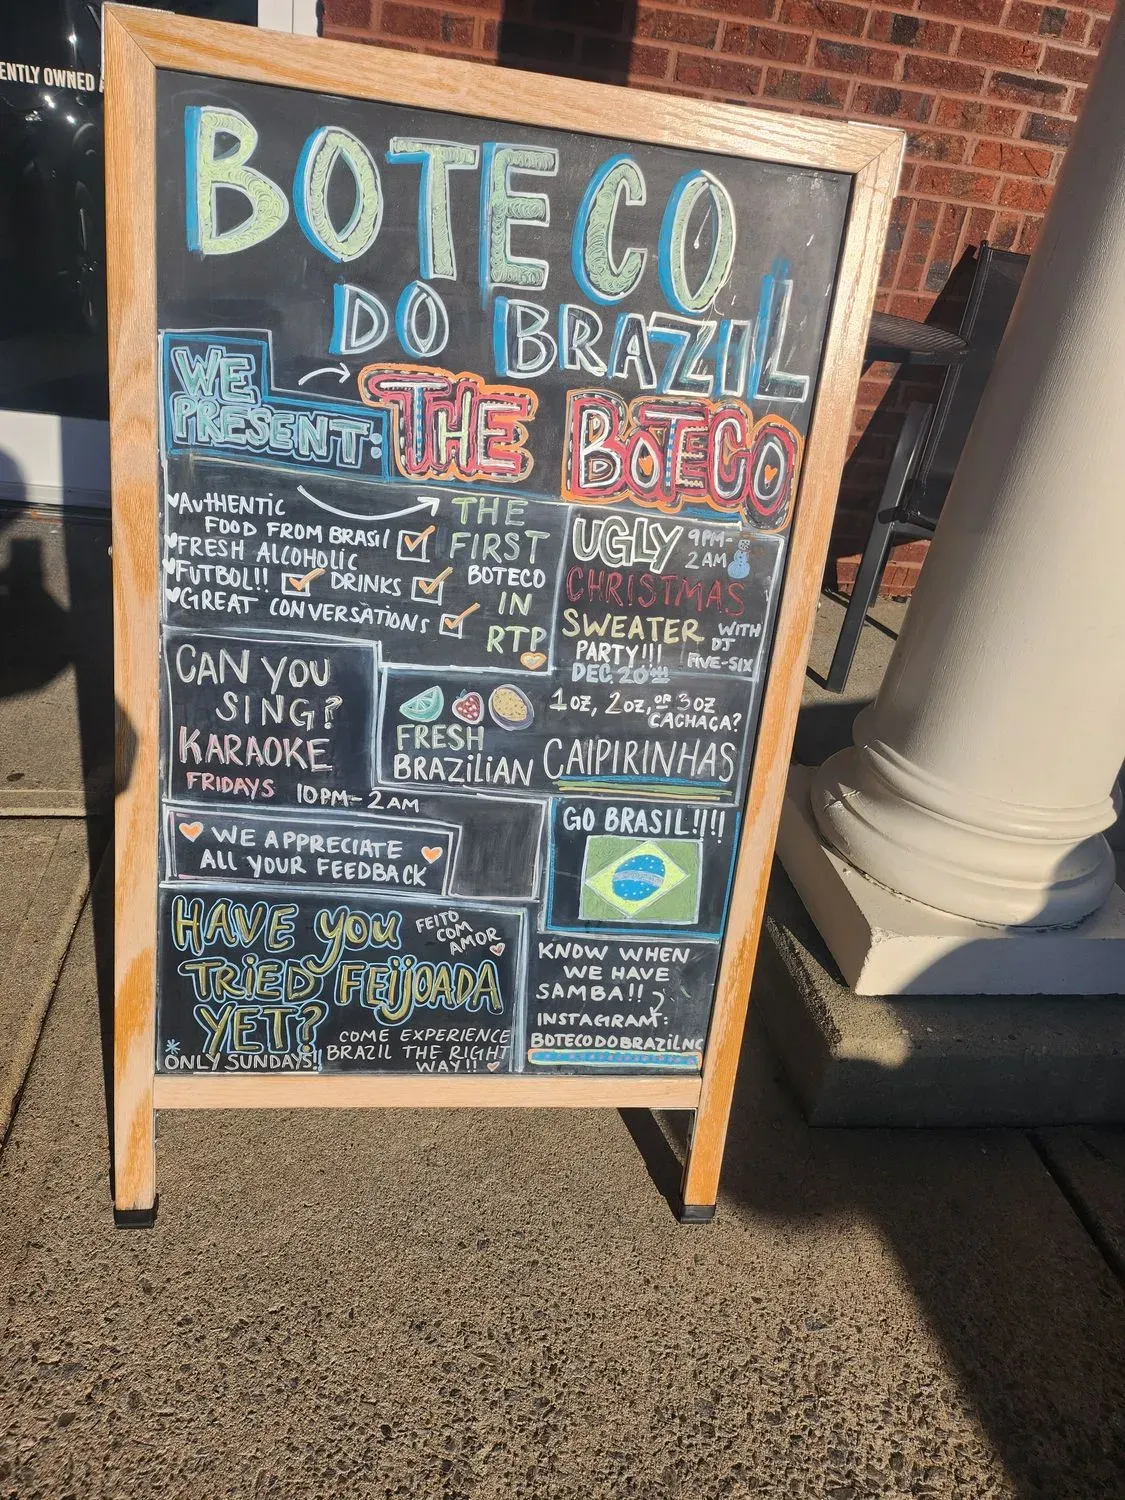 ENTLY OWNED
BOTECO
DO BRAZIL
WE
PRESENT:
THE BOTECO
♥AUTHENTIC
FOOD FROM BRASIL
♥FRESH ALCOHOLIC
♥FUTBOL!! DRINKS
♥GREAT CONVERSATIONS
THE
FIRST
BOTECO
IN
RTP
UGLY 9PM-
2AM
CHRISTMAS
SWEATER WITH
DJ
PARTY!!! FIVE-SIX
DEC. 20TH
CAN YOU
SING?
KARAOKE
FRIDAYS 10PM-2AM
1oz, 2oz, OR 3oz
CACHAÇA?
FRESH
BRAZILIAN CAIPIRINHAS
WE APPRECIATE
ALL YOUR FEEDBACK
GO BRASIL!!!!
HAVE YOU
FEITO
COM
AMOR
TRIED FEIJOADA
YET?
*ONLY SUNDAYS!!
COME EXPERIENCE
BRAZIL THE RIGHT
WAY!!
KNOW WHEN
WE HAVE
SAMBA!!
INSTAGRAM:
BOTECODOBRAZILNC